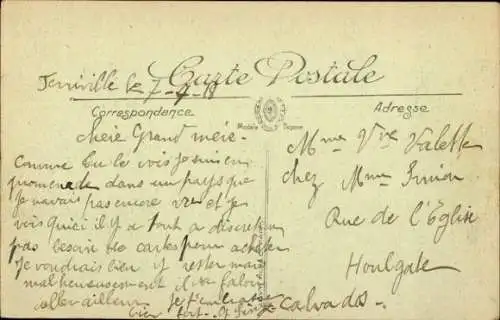 Carte Postale
le 7-9-18
Correspondence
Adresse
Modèle Déposé
chère Grand'mère -
Comme tu le vois je suis en
promenade dans un pays que
je n'avais pas encore vu et je
vois qu'ici il y a tout a discretion
pas besoin de cartes pour acheter
Je voudrais bien y rester mais
malheureusement il va falloir
aller ailleurs. Je t'embrasse
bien fort
Mme Vve Valette
chez Mme
Rue de l'Église
Houlgate
calvados -